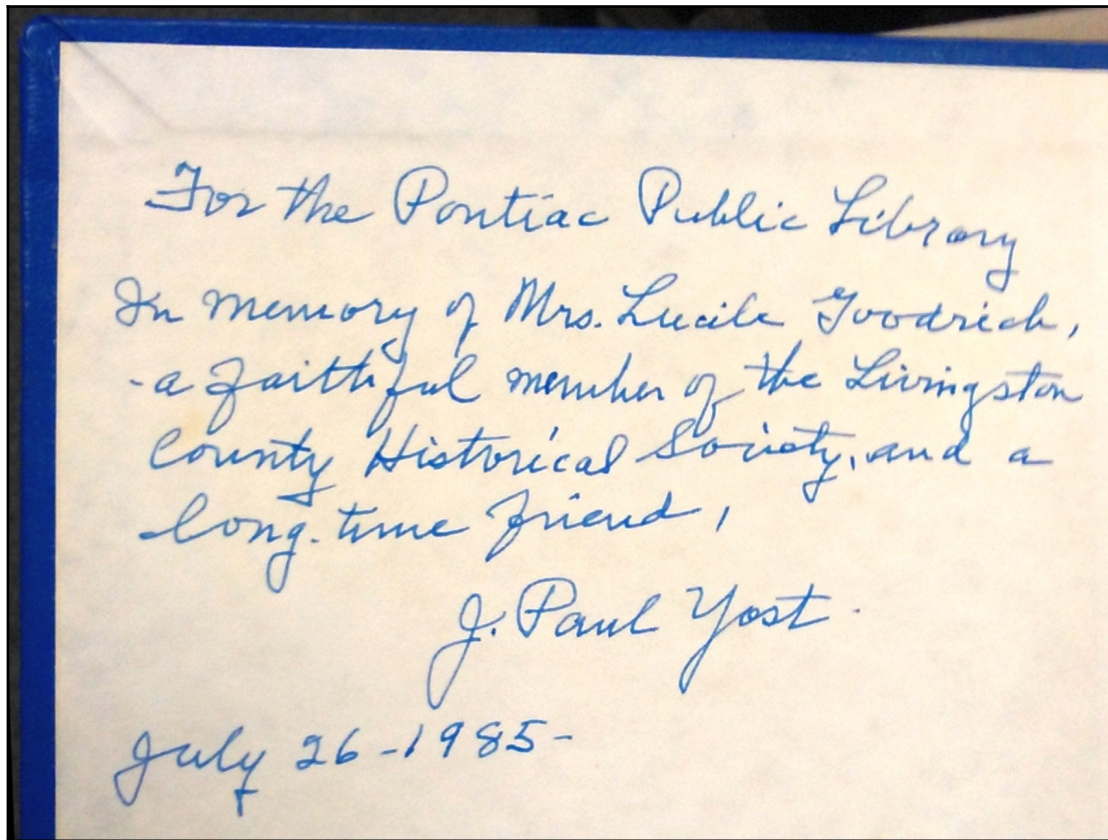 For the Pontiac Public Library
In memory of Mrs. Lucile Goodrich,
-a faithful member of the Livingston
County Historical Society, and a
long-time friend,
J. Paul Yost.
July 26-1985-